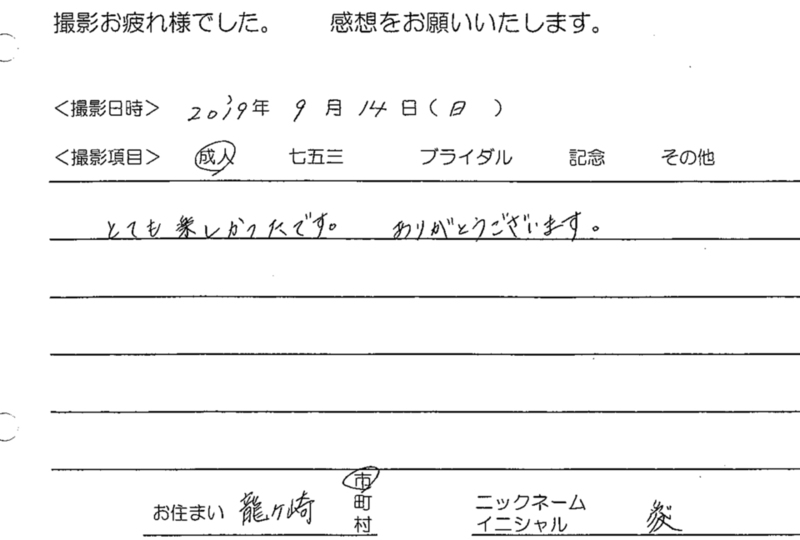 撮影お疲れ様でした。 感想をお願いいたします。
<撮影日時> 2019年 9月 14日(日)
<撮影項目> 成人 七五三 ブライダル 記念 その他
とても楽しかったです。 ありがとうございます。
お住まい 龍ヶ崎 市町村 ニックネーム イニシャル